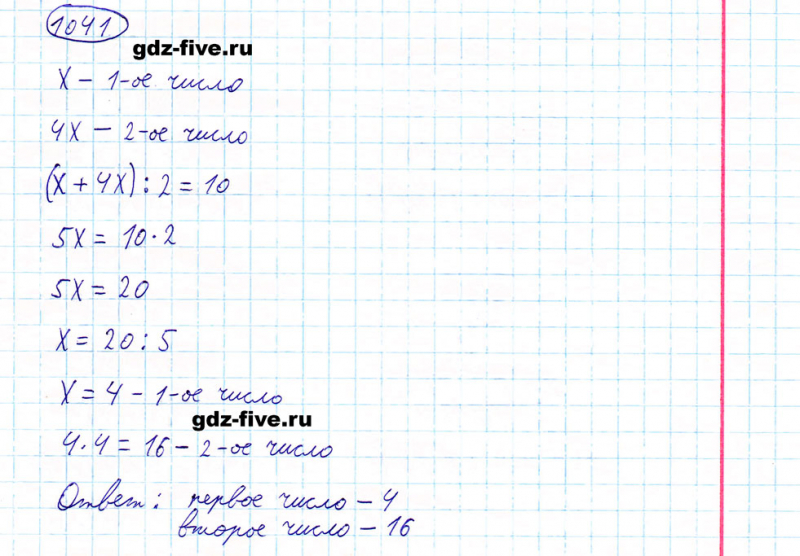 1041
gdz-five.ru
x – 1-ое число
4x – 2-ое число
(x + 4x) : 2 = 10
5x = 10 · 2
5x = 20
x = 20 : 5
x = 4 – 1-ое число
gdz-five.ru
4 · 4 = 16 – 2-ое число
Ответ: первое число – 4
второе число – 16